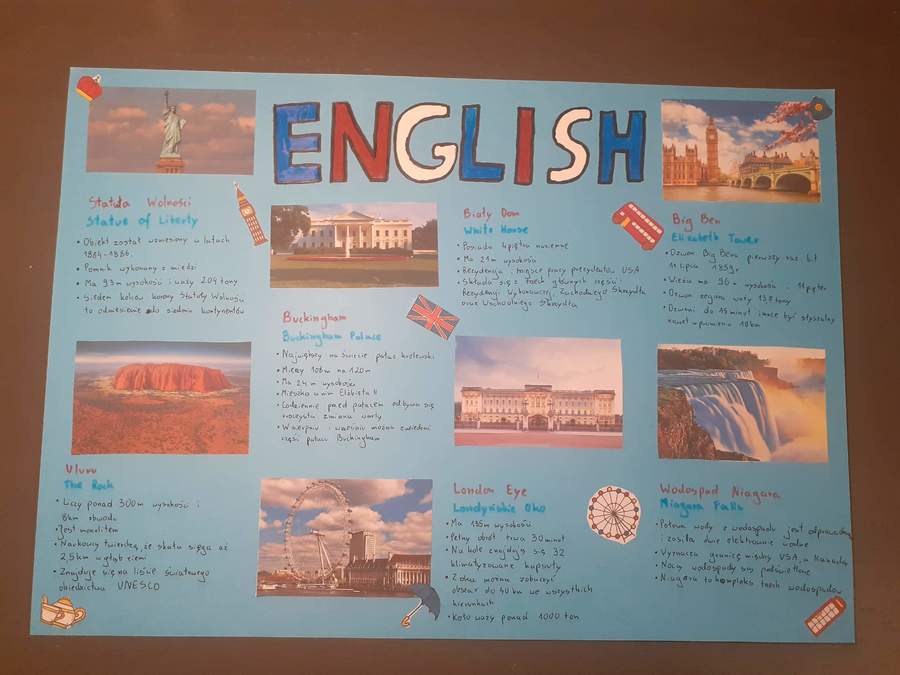 ENGLISH
Statuła Wolności
Statue of Liberty
• Obiekt został wzniesiony w latach
1884-1886.
• Pomnik wykonany z miedzi
• Ma 93m wysokości i waży 204 tony
• Siedem kolców korony Statuły Wolności
to odniesienie do siedmiu kontynentów
Biały Dom
White House
• Posiada 4 piętra naziemne
• Ma 21m wysokości
• Rezydencja i miejsce pracy prezydentów USA
• Składa się z trzech głównych części:
Rezydencji Wykonawczej, Zachodniego Skrzydła
oraz Wschodniego Skrzydła
Big Ben
Elizabeth Tower
• Dzwon Big Bena pierwszy raz bił
11 lipca 1859r.
• Wieża ma 96m wysokości i 11 pięter
• Dzwon zegara waży 13,8 tony
• Dzwoni do 15 minut i może być słyszalny
nawet w promieniu 10km
Buckingham
Buckingham Palace
• Największy na świecie pałac królewski
• Mierzy 108m na 120m
• Ma 24m wysokości
• Mieszka w nim Elżbieta II
• Codziennie przed pałacem odbywa się
uroczysta zmiana warty
• W sierpniu i wrześniu można zwiedzać
część pałacu Buckingham
Uluru
The Rock
• Liczy ponad 300m wysokości i
8km obwodu
• Jest monolitem
• Naukowcy twierdzą, że skała sięga aż
2,5km w głąb ziemi
• Znajduje się na liście światowego
dziedzictwa UNESCO
London Eye
Londyńskie Oko
• Ma 135m wysokości
• Pełny obrót trwa 30 minut
• Na kole znajduje się 32
klimatyzowane kapsuły
• Z oka można zobaczyć
obszar do 40km we wszystkich
kierunkach
• Koło waży ponad 1000 ton
Wodospad Niagara
Niagara Falls
• Połowa wody z wodospadu jest odprowadzana
i zasila dwie elektrownie wodne
• Wyznacza granicę między USA, a Kanadą
• Nocą wodospady są podświetlane
• Niagara to kompleks trzech wodospadów